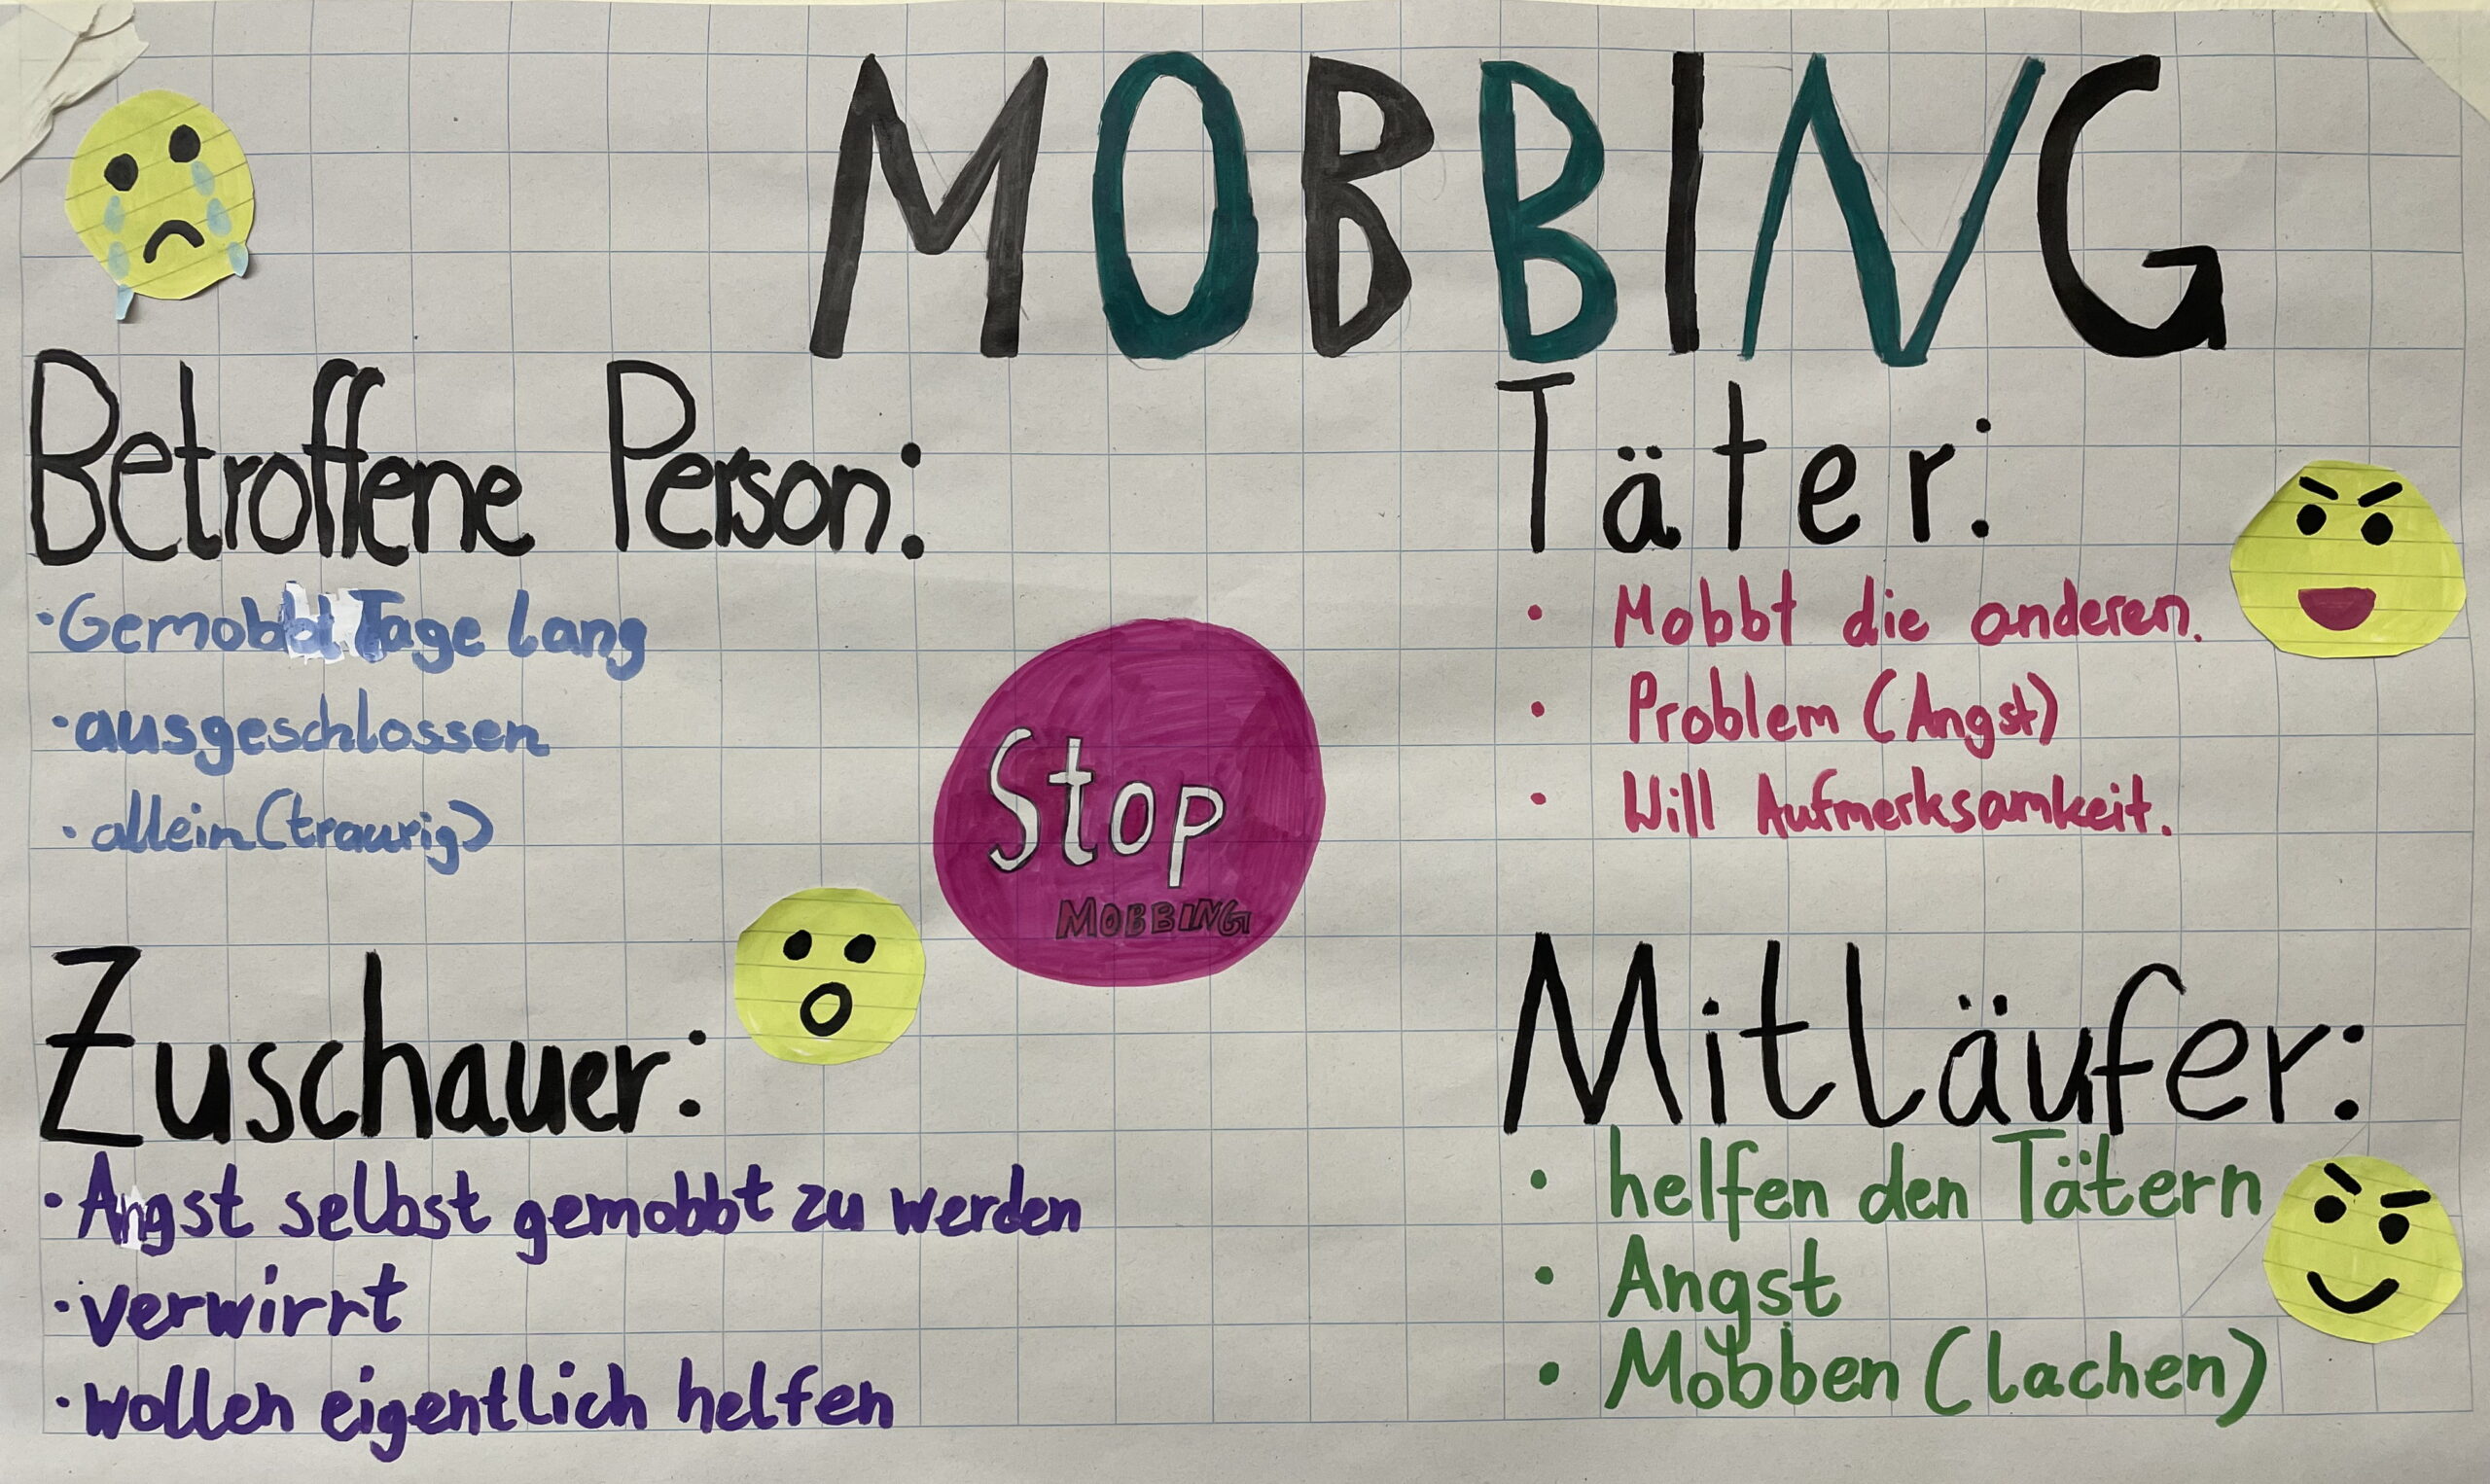 MOBBING
Betroffene Person:
·Gemobbt Tage lang
·ausgeschlossen
·allein (traurig)
Täter:
· Mobbt die anderen.
· Problem (Angst)
· Will Aufmerksamkeit.
Stop
MOBBING
Zuschauer:
·Angst selbst gemobbt zu werden
·verwirrt
·wollen eigentlich helfen
Mitläufer:
· helfen den Tätern
· Angst
· Mobben (lachen)